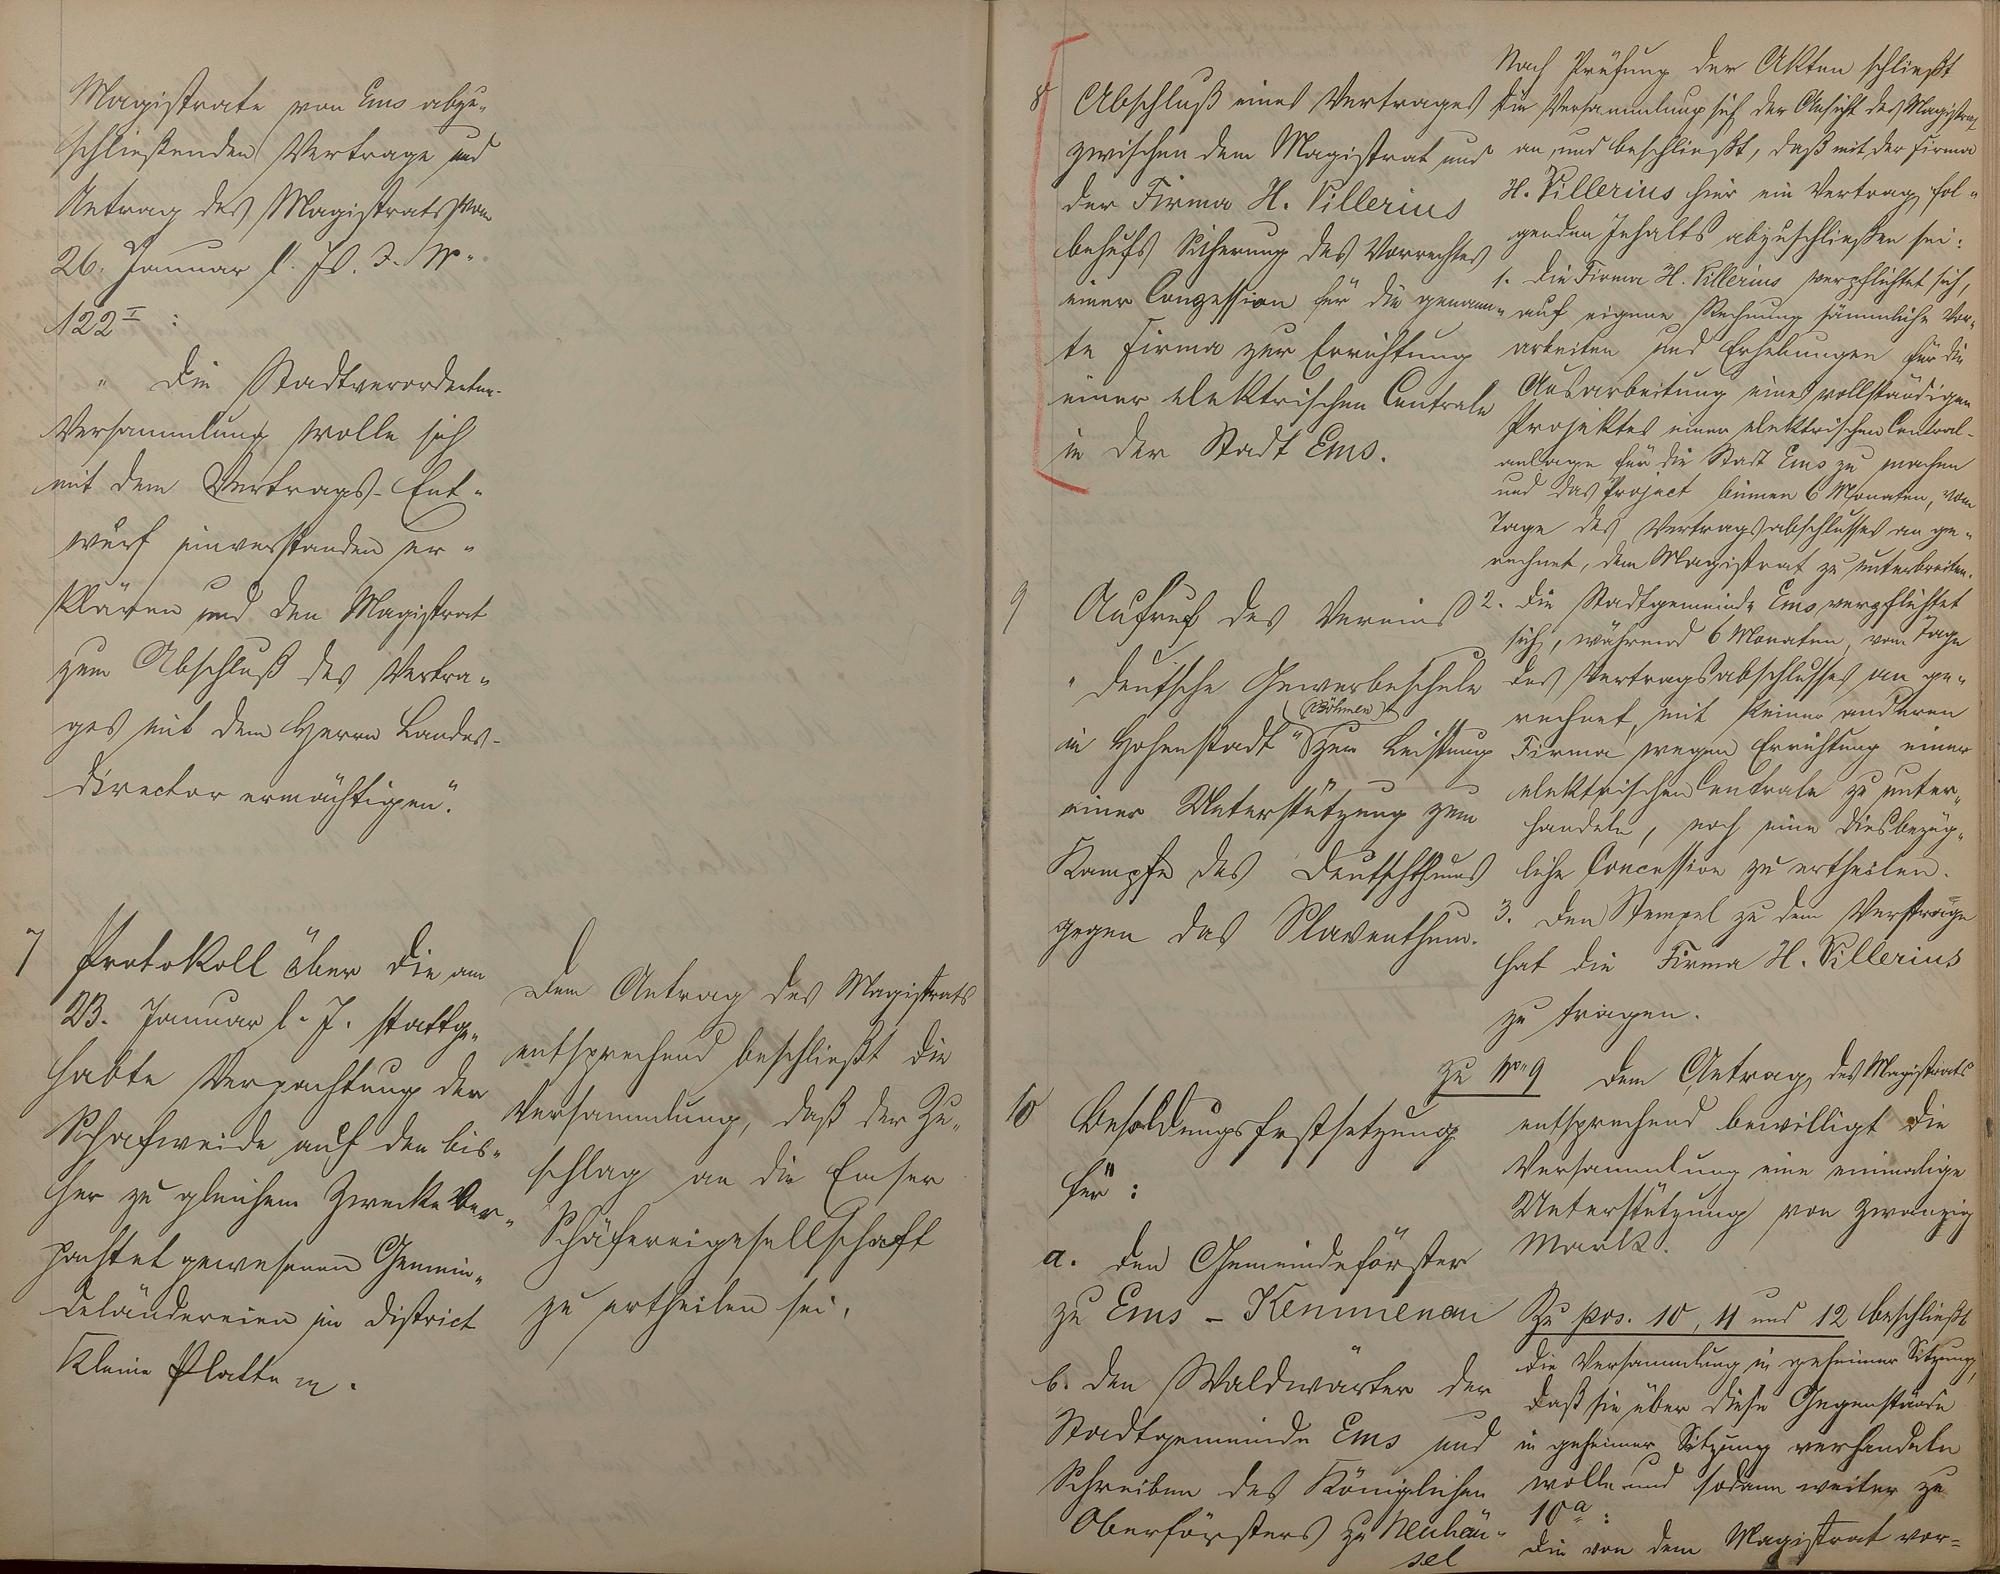 Magistrate von Ems abzu-
schließenden Vertrage und
Antrag des Magistrats vom
26. Januar l. Js. J. No.
122 I :
" Die Stadtverordneten-
Versammlung wolle sich
mit dem Vertrags-Ent-
wurf einverstanden er-
klären und den Magistrat
zum Abschluß des Vertra-
ges mit dem Herrn Landes-
director ermächtigen".
7 Protokoll über die am
23. Januar l. J. stattge-
habte Verpachtung der
Schafweide auf den bis-
her zu gleichem Zwecke ver-
pachtet gewesenen Gemein-
deländereien im District
Kleine Platte
Dem Antrag des Magistrats
entsprechend beschließt die
Versammlung, daß der Zu-
schlag an die Emser
Schäfereigesellschaft
zu ertheilen sei.
8 Abschluß eines Vertrages
zwischen dem Magistrat und
der Firma H. Villerius
behufs Sicherung des Vorrechtes
einer Conzession für die genann-
te Firma zur Errichtung
einer elektrischen Centrale
in der Stadt Ems.
9 Aufruf des Vereins
"Deutsche Gewerbeschule
(Böhmen)
in Hohenstadt" zur Leistung
einer Unterstützung zum
Kampfe des Deutschthums
gegen das Slaventhum.
10 Besoldungsfestsetzung
für :
a. den Gemeindeförster
zu Ems - Kemmenau
b. den Waldwärter der
Stadtgemeinde Ems und
Schreiben des Königlichen
Oberförsters zu Neuhäu-
sel
Nach Prüfung der Akten schließt
die Versammlung sich der Ansicht des Magistrats
an und beschließt, daß mit der Firma
H. Villerius hier ein Vertrag fol-
genden Inhalts abzuschließen sei:
1. Die Firma H. Villerius verpflichtet sich,
auf eigene Rechnung sämmliche Vor-
arbeiten und Erhebungen für die
Ausarbeitung eines vollständigen
Projektes einer elektrischen Central-
anlage für die Stadt Ems zu machen
und das Project binnen 6 Monaten, vom
Tage des Vertragsabschlusses an ge-
rechnet, dem Magistrat zu unterbreiten.
2. Die Stadtgemeinde Ems verpflichtet
sich, während 6 Monaten, vom Tage
des Vertragsabschlusses an ge-
rechnet, mit keiner anderen
Firma wegen Errichtung einer
elektrischen Centrale zu unter-
handeln, noch eine diesbezüg-
liche Concession zu ertheilen.
3. Den Stempel zu dem Vertrage
hat die Firma H. Villerius
zu tragen.
zu No. 9 Dem Antrag des Magistrats
entsprechend bewilligt die
Versammlung eine einmalige
Unterstützung von zwanzig
Mark.
Zu pos. 10, 11 und 12 beschließt
die Versammlung in geheimer Sitzung,
daß sie über diese Gegenstände
in geheimer Sitzung verhandeln
wolle und sodann weiter zu
10 a :
Die von dem Magistrat vor-